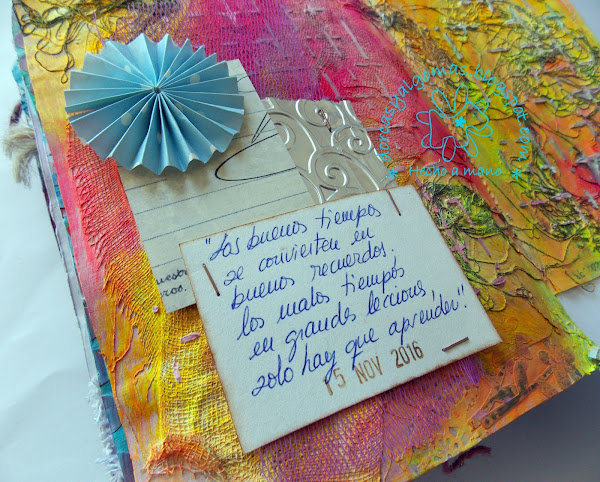 "Los buenos tiempos
se convierten en
buenos recuerdos,
los malos tiempos
en grandes lecciones
solo hay que aprender".
15 NOV 2016
Hecho a mano